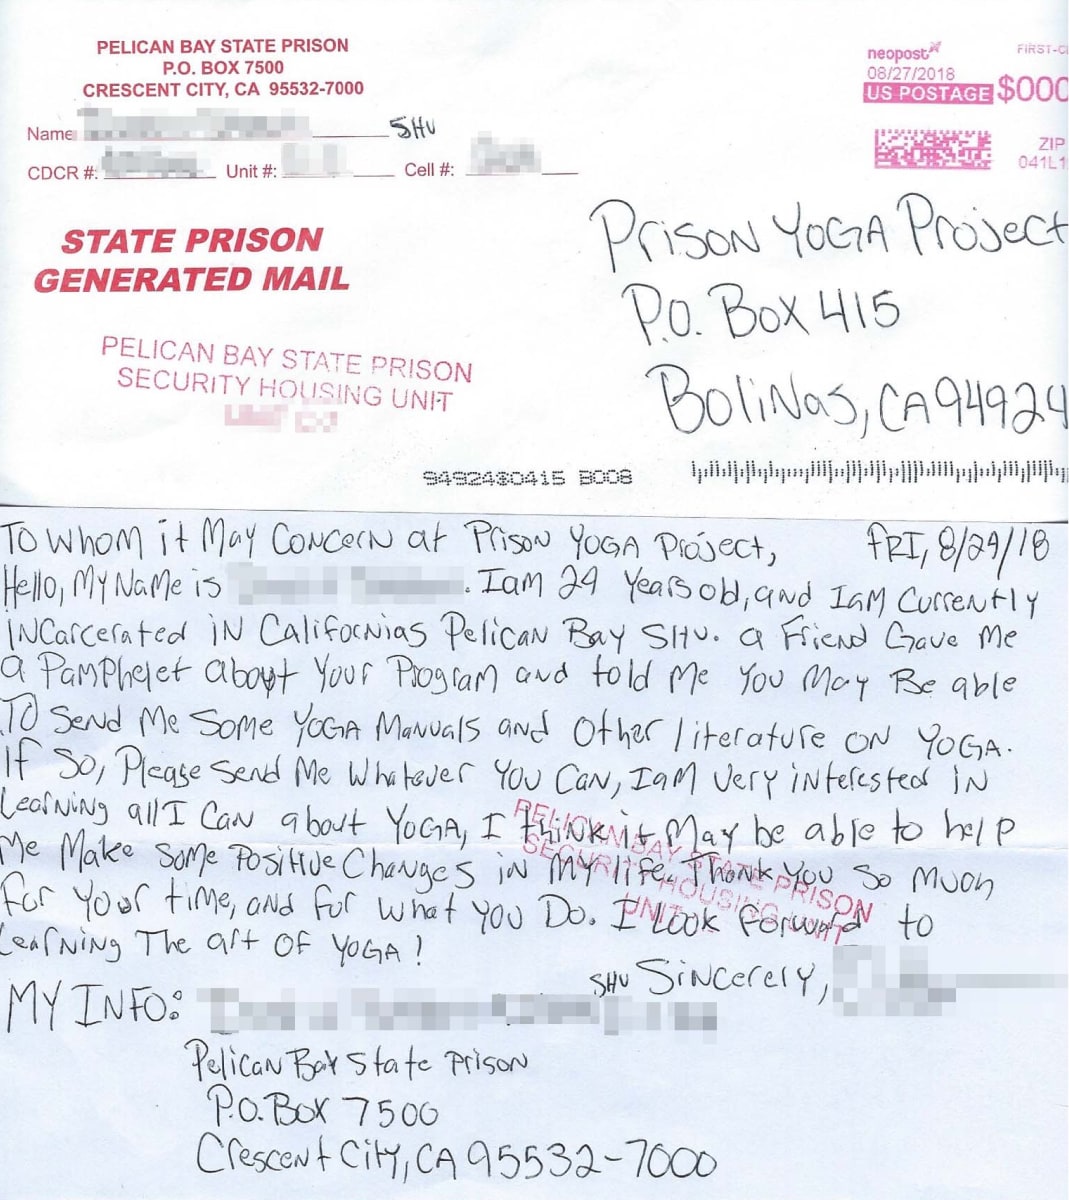 PELICAN BAY STATE PRISON
P.O. BOX 7500
CRESCENT CITY, CA 95532-7000
Name SHU
CDCR #: Unit #: Cell #:
STATE PRISON
GENERATED MAIL
PELICAN BAY STATE PRISON
SECURITY HOUSING UNIT
neopost
08/27/2018
US POSTAGE
FIRST-CL
$000
ZIP
041L1
Prison YOGA Project
P.O. Box 415
Bolinas, CA 94924
94924$0415 B008
To whom it May Concern at Prison YOGA Project, FRI, 8/24/18
Hello, My Name is . I am 24 Years old, and I am Currently
INcarcerated iN Californias Pelican Bay SHU. a Friend Gave Me
a Pamphelet about Your Program and told Me You May Be able
To Send Me Some YOGA Manuals and Other literature ON YOGA.
If So, Please Send Me Whatever You Can, I am Very interested in
Learning all I Can about YOGA, I think it May be able to help
Me Make Some Positive Changes in My life. Thank You So Much
For Your time, and for what You Do. I Look Forward to
Learning The art Of YOGA!
PELICAN BAY STATE PRISON
SECURITY HOUSING UNIT
UNIT
SHU Sincerely,
MY INFO:
Pelican Bay State Prison
P.O. Box 7500
Crescent City, CA 95532-7000